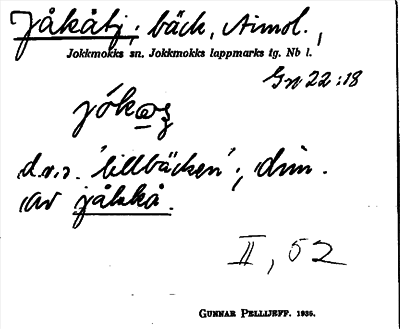 Jåkåtj, bäck, Aimol.,
Jokkmokks sn. Jokkmokks lappmarks tg. Nb l.
Gn 22:18
d.v.s. 'lillbäcken'; dim.
av jåkkå.
II, 52
GUNNAR PELLIJEFF. 1936.